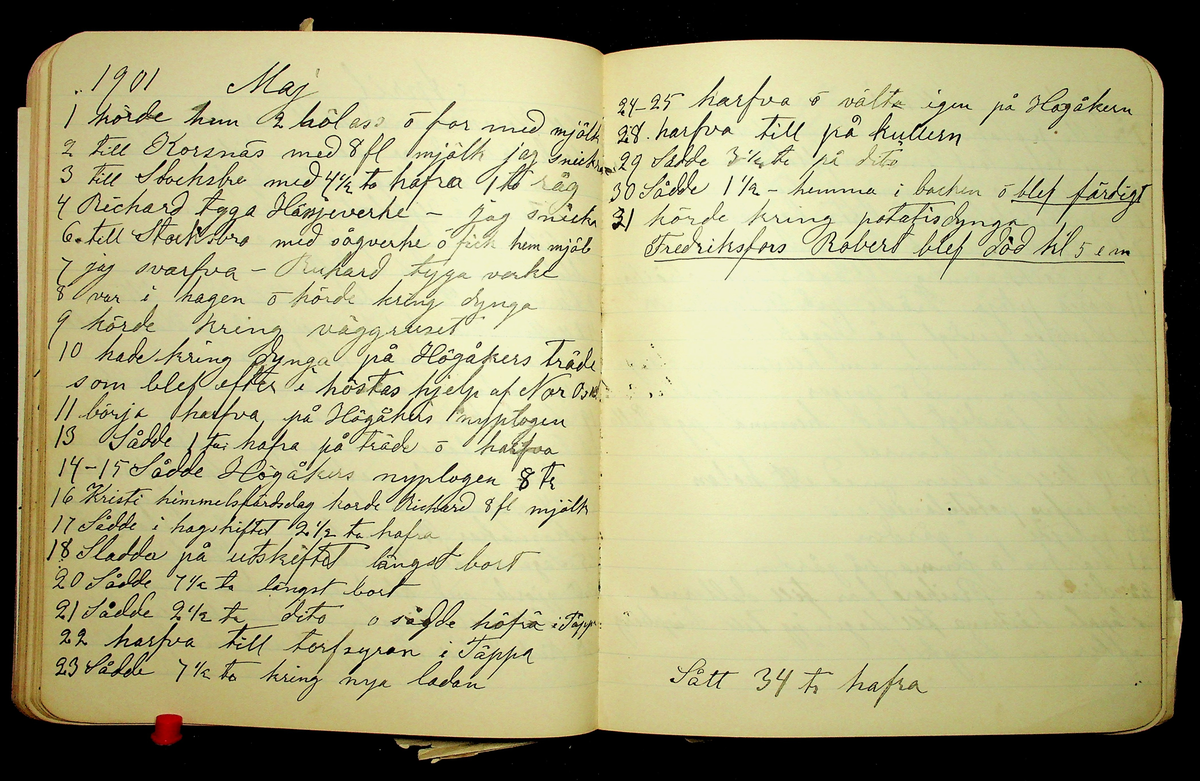 1901 Maj
1 körde hem 2 hölass o for med mjölk
2 till Korsnäs med 8 fl mjölk jag snickra
3 till Stocksbro med 4 1/2 to hafra 1 to råg
4 Richard tygga Hänjeverke – jag snickra
6 till Stocksbro med sågverke o fick hem mjöl
7 jag svarfva – Rickard tygga verke
8 var i hagen o körde kring dynga
9 körde kring väggruset
10 hade kring dynga på Högåkers träde
som blef efter i höstas hjelp af Nor
11 börja harfva på Högåkers nyplogen
13 Sådde 1 to hafra på träde o harfva
14–15 Sådde Högåkers nyplogen 8 to
16 Kristi himmelsfärdsdag körde Richard 8 fl mjölk
17 Sådde i hagskiftet 2 1/2 to hafra
18 Sladda på utskiftet längst bort
20 Sådde 7 1/2 to längst bort
21 Sådde 2 1/2 to dito o sådde höfrö i Täpp
22 harfva till torfsyran i Täppa
23 Sådde 7 1/2 to kring nya ladan
24–25 harfva o välta igen på Högåkern
28. harfva till på kullern
29 Sådde 3 1/2 to på dito
30 Sådde 1 1/2 – hemma i backen o blef färdigt
31 körde kring potatisdynga
Fredriksfors Robert blef död kl 5 e m
Sått 34 to hafra